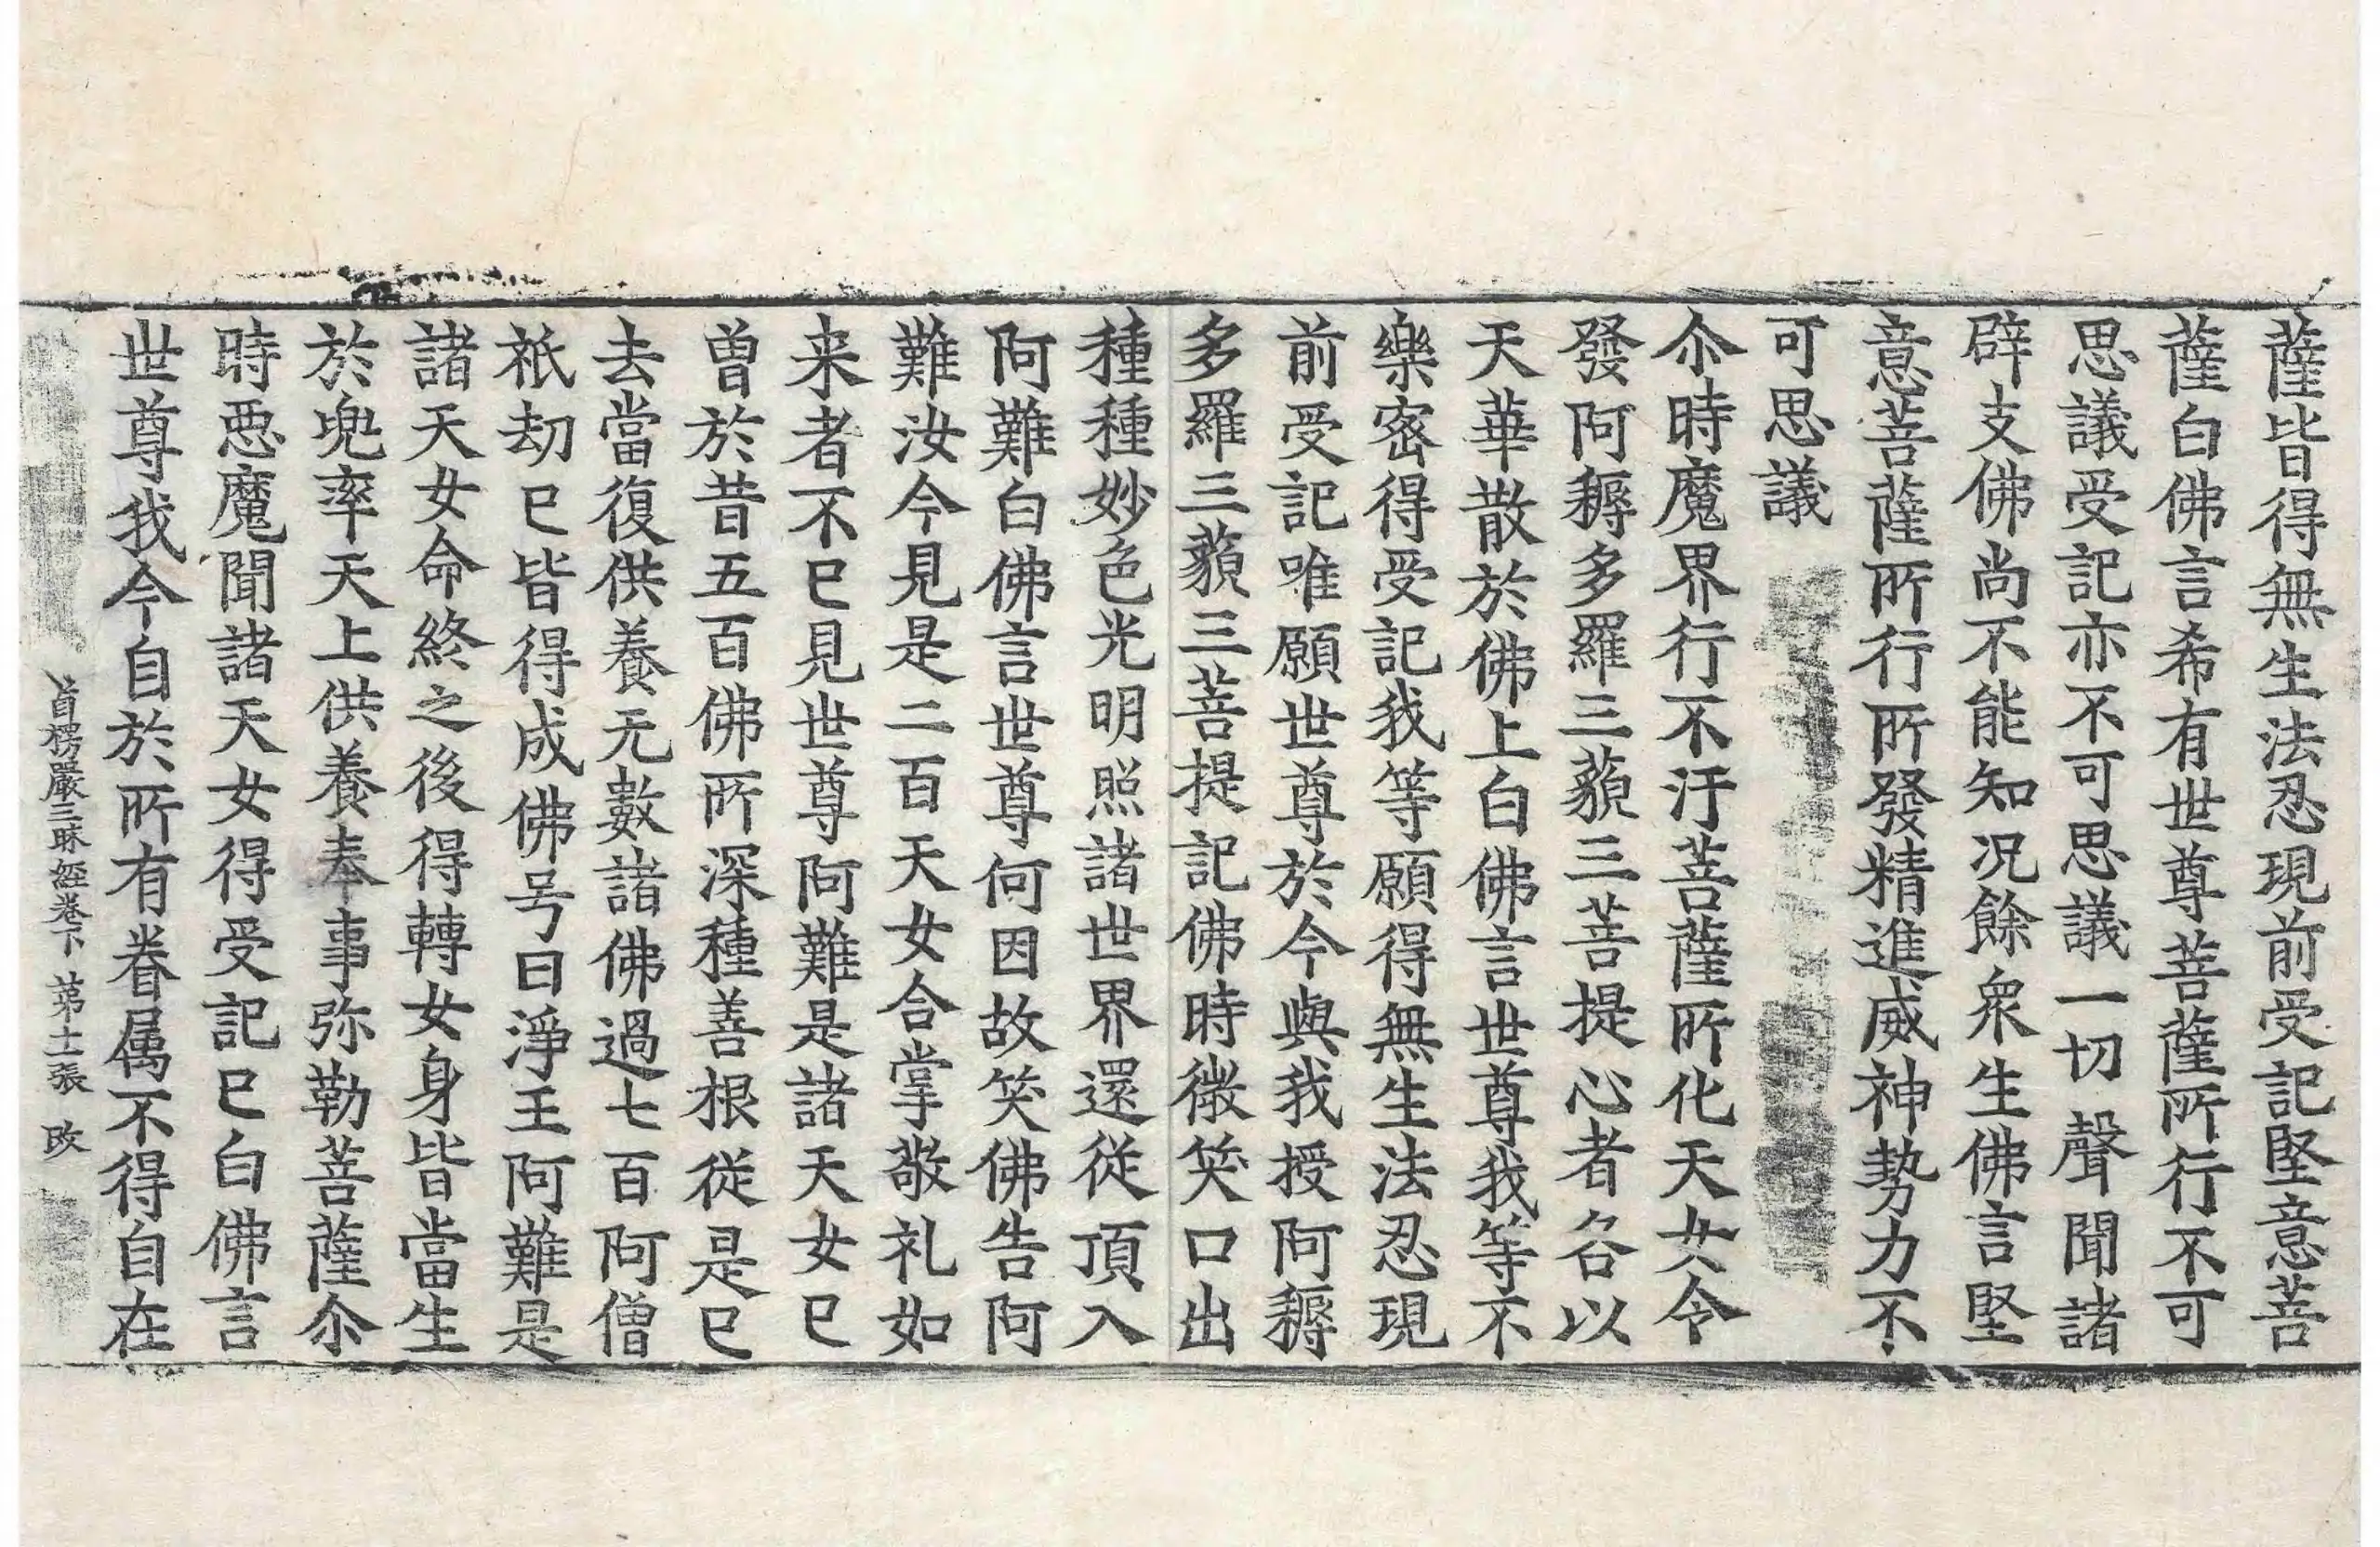 薩皆得無生法忍現前受記堅意菩
薩白佛言希有世尊菩薩所行不可
思議受記亦不可思議一切聲聞諸
辟支佛尚不能知况餘衆生佛言堅
意菩薩所行所發精進威神勢力不
可思議
尒時魔界行不汙菩薩所化天女令
發阿耨多羅三藐三菩提心者各以
天華散於佛上白佛言世尊我等不
樂密得受記我等願得無生法忍現
前受記唯願世尊於今與我授阿耨
多羅三藐三菩提記佛時微笑口出
種種妙色光明照諸世界還從頂入
阿難白佛言世尊何因故笑佛告阿
難汝今見是二百天女合掌敬礼如
来者不已見世尊阿難是諸天女已
曾於昔五百佛所深種善根従是已
去當復供養无數諸佛過七百阿僧
祇劫已皆得成佛号曰淨王阿難是
諸天女命終之後得轉女身皆當生
於兜率天上供養奉事弥勒菩薩尒
時惡魔聞諸天女得受記已白佛言
世尊我今自於所有眷属不得自在
首楞嚴三昧経卷下 苐十二張 改